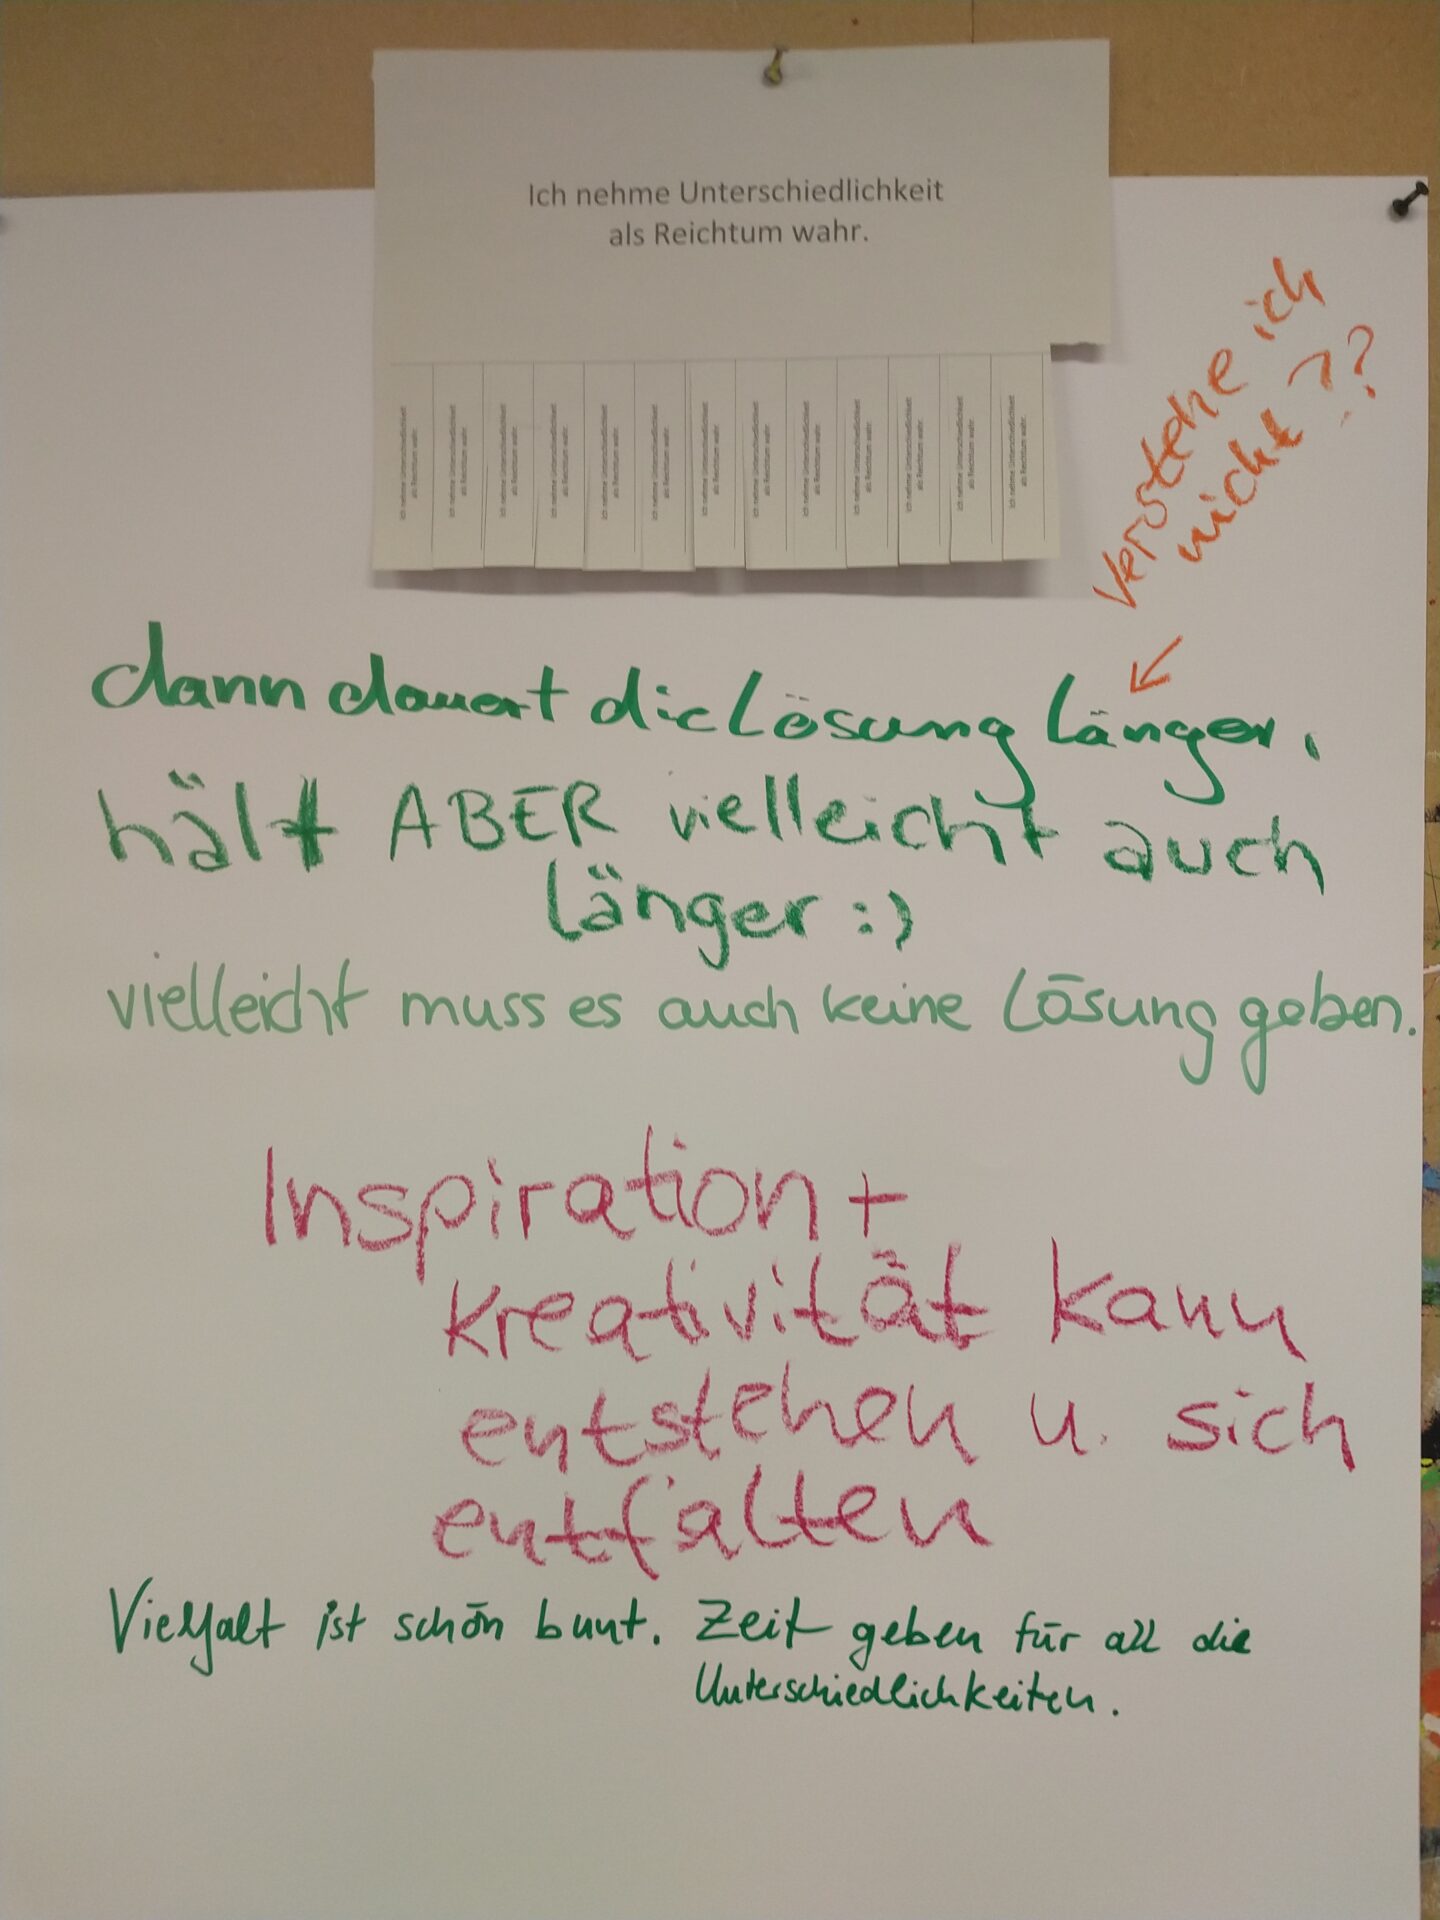 Ich nehme Unterschiedlichkeit
als Reichtum wahr.
Ich nehme Unterschiedlichkeit
als Reichtum wahr.
Ich nehme Unterschiedlichkeit
als Reichtum wahr.
Ich nehme Unterschiedlichkeit
als Reichtum wahr.
Ich nehme Unterschiedlichkeit
als Reichtum wahr.
Ich nehme Unterschiedlichkeit
als Reichtum wahr.
Ich nehme Unterschiedlichkeit
als Reichtum wahr.
Ich nehme Unterschiedlichkeit
als Reichtum wahr.
Ich nehme Unterschiedlichkeit
als Reichtum wahr.
Ich nehme Unterschiedlichkeit
als Reichtum wahr.
Ich nehme Unterschiedlichkeit
als Reichtum wahr.
Ich nehme Unterschiedlichkeit
als Reichtum wahr.
Ich nehme Unterschiedlichkeit
als Reichtum wahr.
Ich nehme Unterschiedlichkeit
als Reichtum wahr.
verstehe ich
nicht ??
dann dauert die Lösung länger,
hält ABER vielleicht auch
länger :)
vielleicht muss es auch keine Lösung geben.
Inspiration +
Kreativität kann
entstehen u. sich
entfalten
Vielfalt ist schön bunt. Zeit geben für all die
Unterschiedlichkeiten.